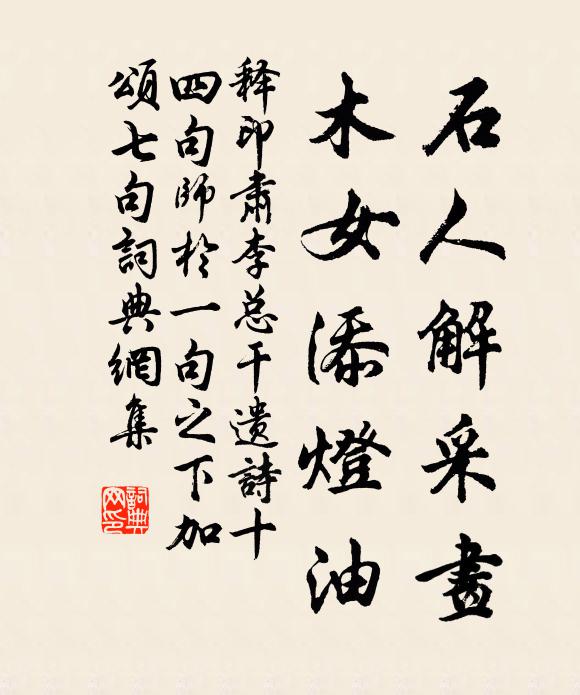 石人解采畫
木女添燈油
释印肃李总干遗詩十
四句師於一句之下加
頌七句詞典網集
詞典
网印